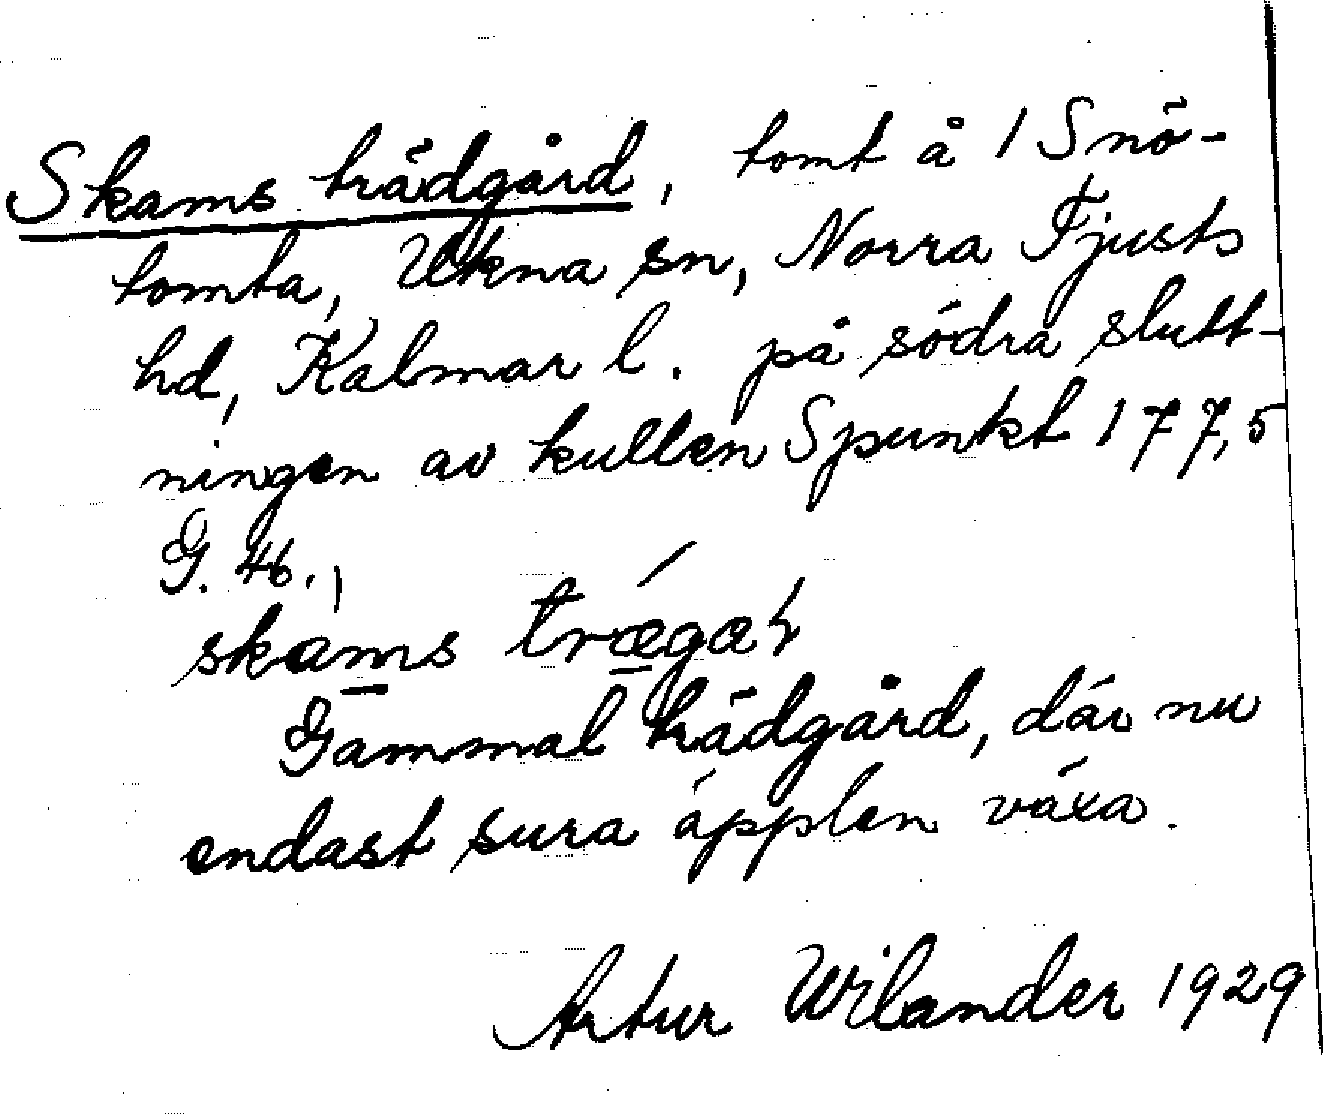 Skams trädgård, tomt å 1 Snö-
tomta, Ukna sn, Norra Tjusts
hd, Kalmar l. på södra slutt-
ningen av kullen Spunkt 177,5
G. 46.,
skams trægaɖ
Gammal trädgård, där nu
endast sura äpplen växa.
Artur Wilander 1929